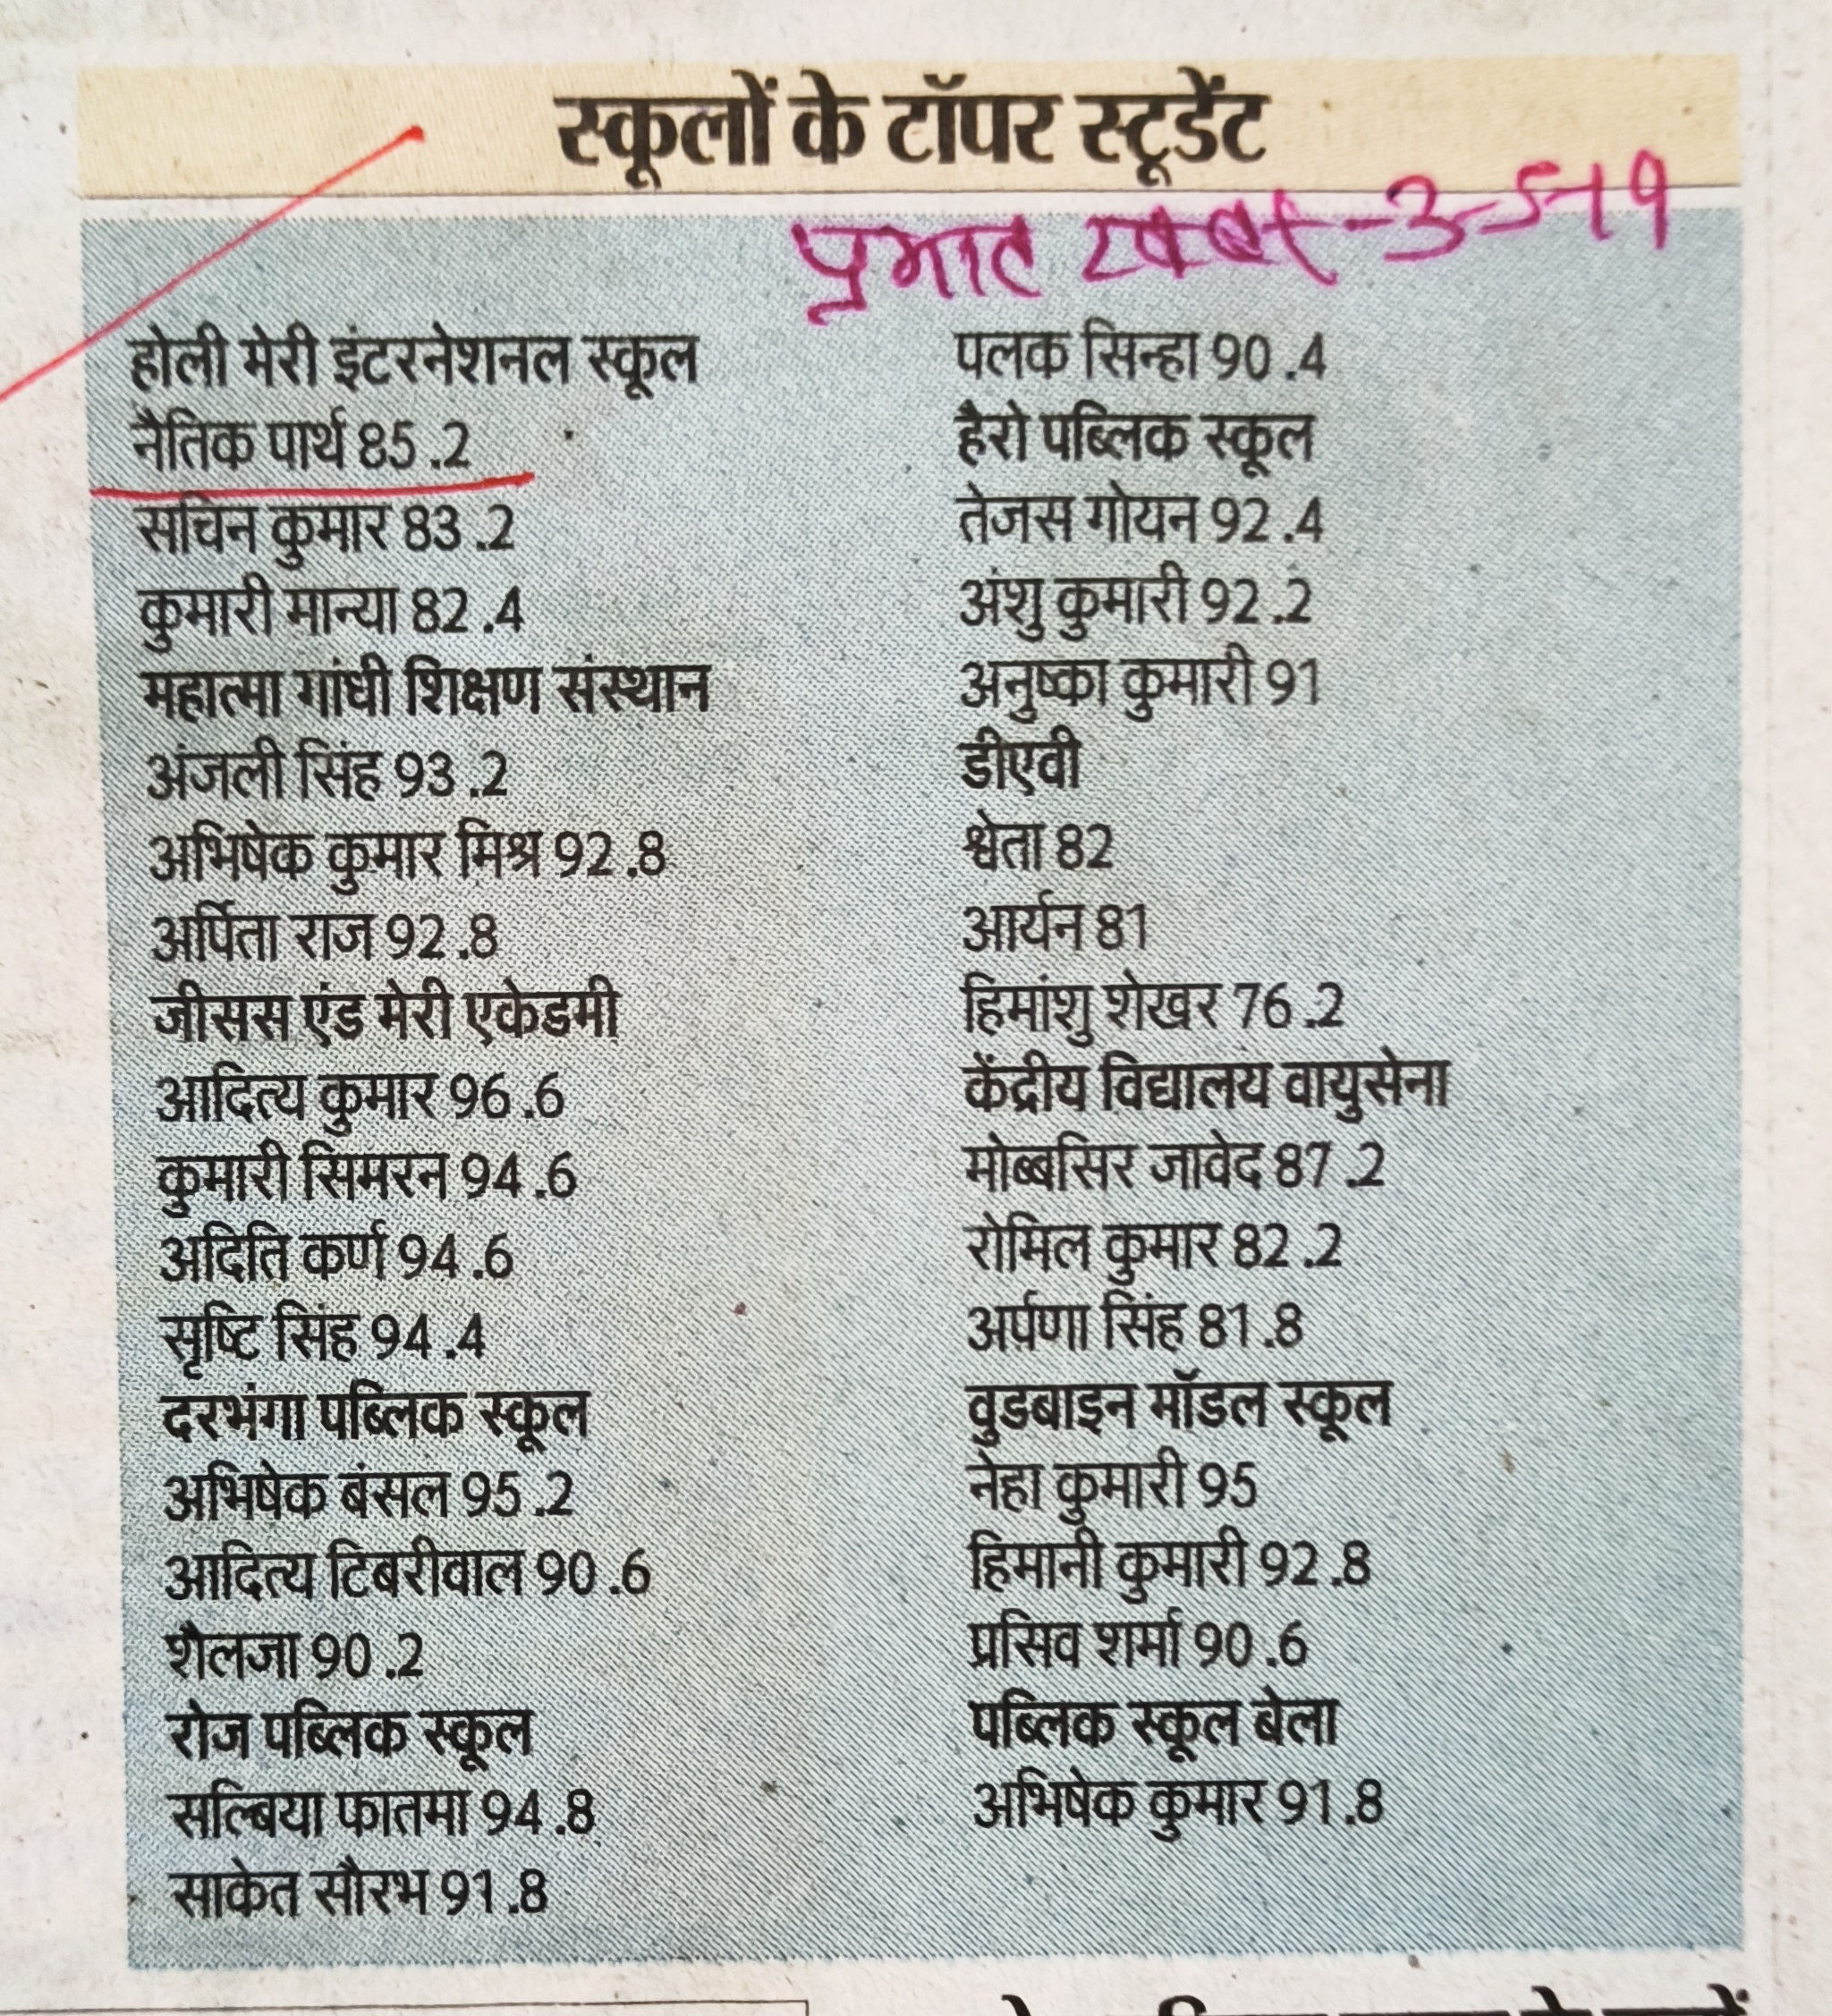 स्कूलों के टॉपर स्टूडेंट
प्रभात खबर-3-5-19
होली मेरी इंटरनेशनल स्कूल
नैतिक पार्थ 85.2
सचिन कुमार 83.2
कुमारी मान्या 82.4
महात्मा गांधी शिक्षण संस्थान
अंजली सिंह 93.2
अभिषेक कुमार मिश्र 92.8
अर्पिता राज 92.8
जीसस एंड मेरी एकेडमी
आदित्य कुमार 96.6
कुमारी सिमरन 94.6
अदिति कर्ण 94.6
सृष्टि सिंह 94.4
दरभंगा पब्लिक स्कूल
अभिषेक बंसल 95.2
आदित्य टिबरीवाल 90.6
शैलजा 90.2
रोज पब्लिक स्कूल
सल्बिया फातमा 94.8
साकेत सौरभ 91.8
पलक सिन्हा 90.4
हैरो पब्लिक स्कूल
तेजस गोयन 92.4
अंशु कुमारी 92.2
अनुष्का कुमारी 91
डीएवी
श्वेता 82
आर्यन 81
हिमांशु शेखर 76.2
केंद्रीय विद्यालय वायुसेना
मोब्बसिर जावेद 87.2
रोमिल कुमार 82.2
अर्पणा सिंह 81.8
वुडबाइन मॉडल स्कूल
नेहा कुमारी 95
हिमानी कुमारी 92.8
प्रसिव शर्मा 90.6
पब्लिक स्कूल बेला
अभिषेक कुमार 91.8